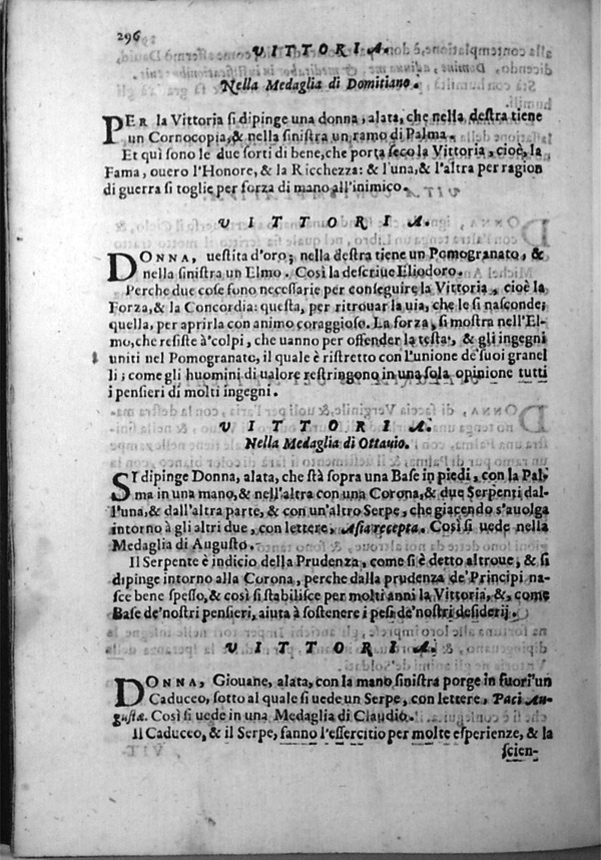 296
VITTORIA.
Nella Medaglia di Domitiano.
PER la Vittoria si dipinge una donna, alata, che nella destra tiene
un Cornocopia, & nella sinistra un ramo di Palma.
Et quì sono le due sorti di bene, che porta seco la Vittoria, cioè, la
Fama, ouero l'Honore, & la Ricchezza: & l'una, & l'altra per ragion
di guerra si toglie per forza di mano all'inimico.
VITTORIA.
DONNA, uestita d'oro; nella destra tiene un Pomogranato, &
nella sinistra un Elmo. Così la descriue Eliodoro.
Perche due cose sono necessarie per conseguire la Vittoria, cioè la
Forza, & la Concordia: questa, per ritrouar la uia, che le si nasconde;
quella, per aprirla con animo coraggioso. La forza, si mostra nell'El-
mo, che resiste à colpi, che uanno per offender la testa, & gli ingegni
uniti nel Pomogranato, il quale è ristretto con l'unione de' suoi granel
li; come gli huomini di ualore restringono in una sola opinione tutti
i pensieri di molti ingegni.
VITTORIA.
Nella Medaglia di Ottauio.
SI dipinge Donna, alata, che stà sopra una Base in piedi, con la Pal-
ma in una mano, & nell'altra con una Corona, & due Serpenti dal-
l'una, & dall'altra parte, & con un'altro Serpe, che giacendo s'auolga
intorno à gli altri due, con lettere, Asia recepta. Così si uede nella
Medaglia di Augusto.
Il Serpente è indicio della Prudenza, come si è detto altroue, & si
dipinge intorno alla Corona, perche dalla prudenza de' Principi na-
sce bene spesso, & così si stabilisce per molti anni la Vittoria, &, come
Base de' nostri pensieri, aiuta à sostenere i pesi de' nostri desiderij.
VITTORIA.
DONNA, Giouane, alata, con la mano sinistra porge in fuori un
Caduceo, sotto al quale si uede un Serpe, con lettere, Paci Au-
gustæ. Così si uede in una Medaglia di Claudio.
Il Caduceo, & il Serpe, sanno l'essercitio per molte esperienze, & la
scien-